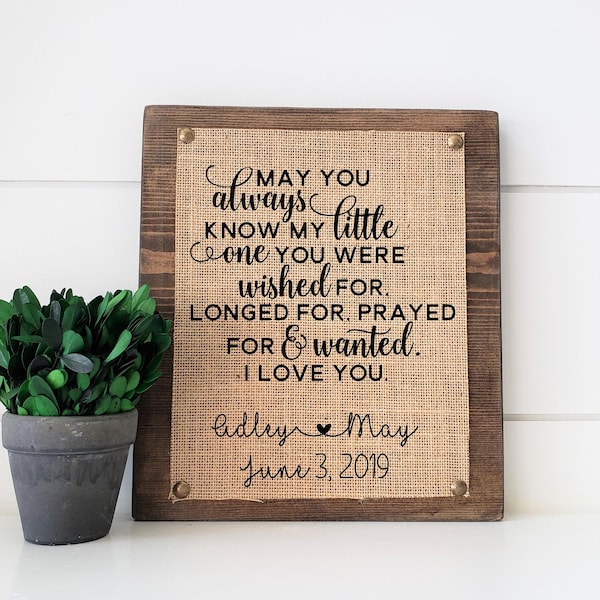 MAY YOU
always
KNOW MY little
one YOU WERE
wished FOR.
LONGED FOR. PRAYED
FOR & wanted.
I LOVE YOU.
Adley May
June 3, 2019